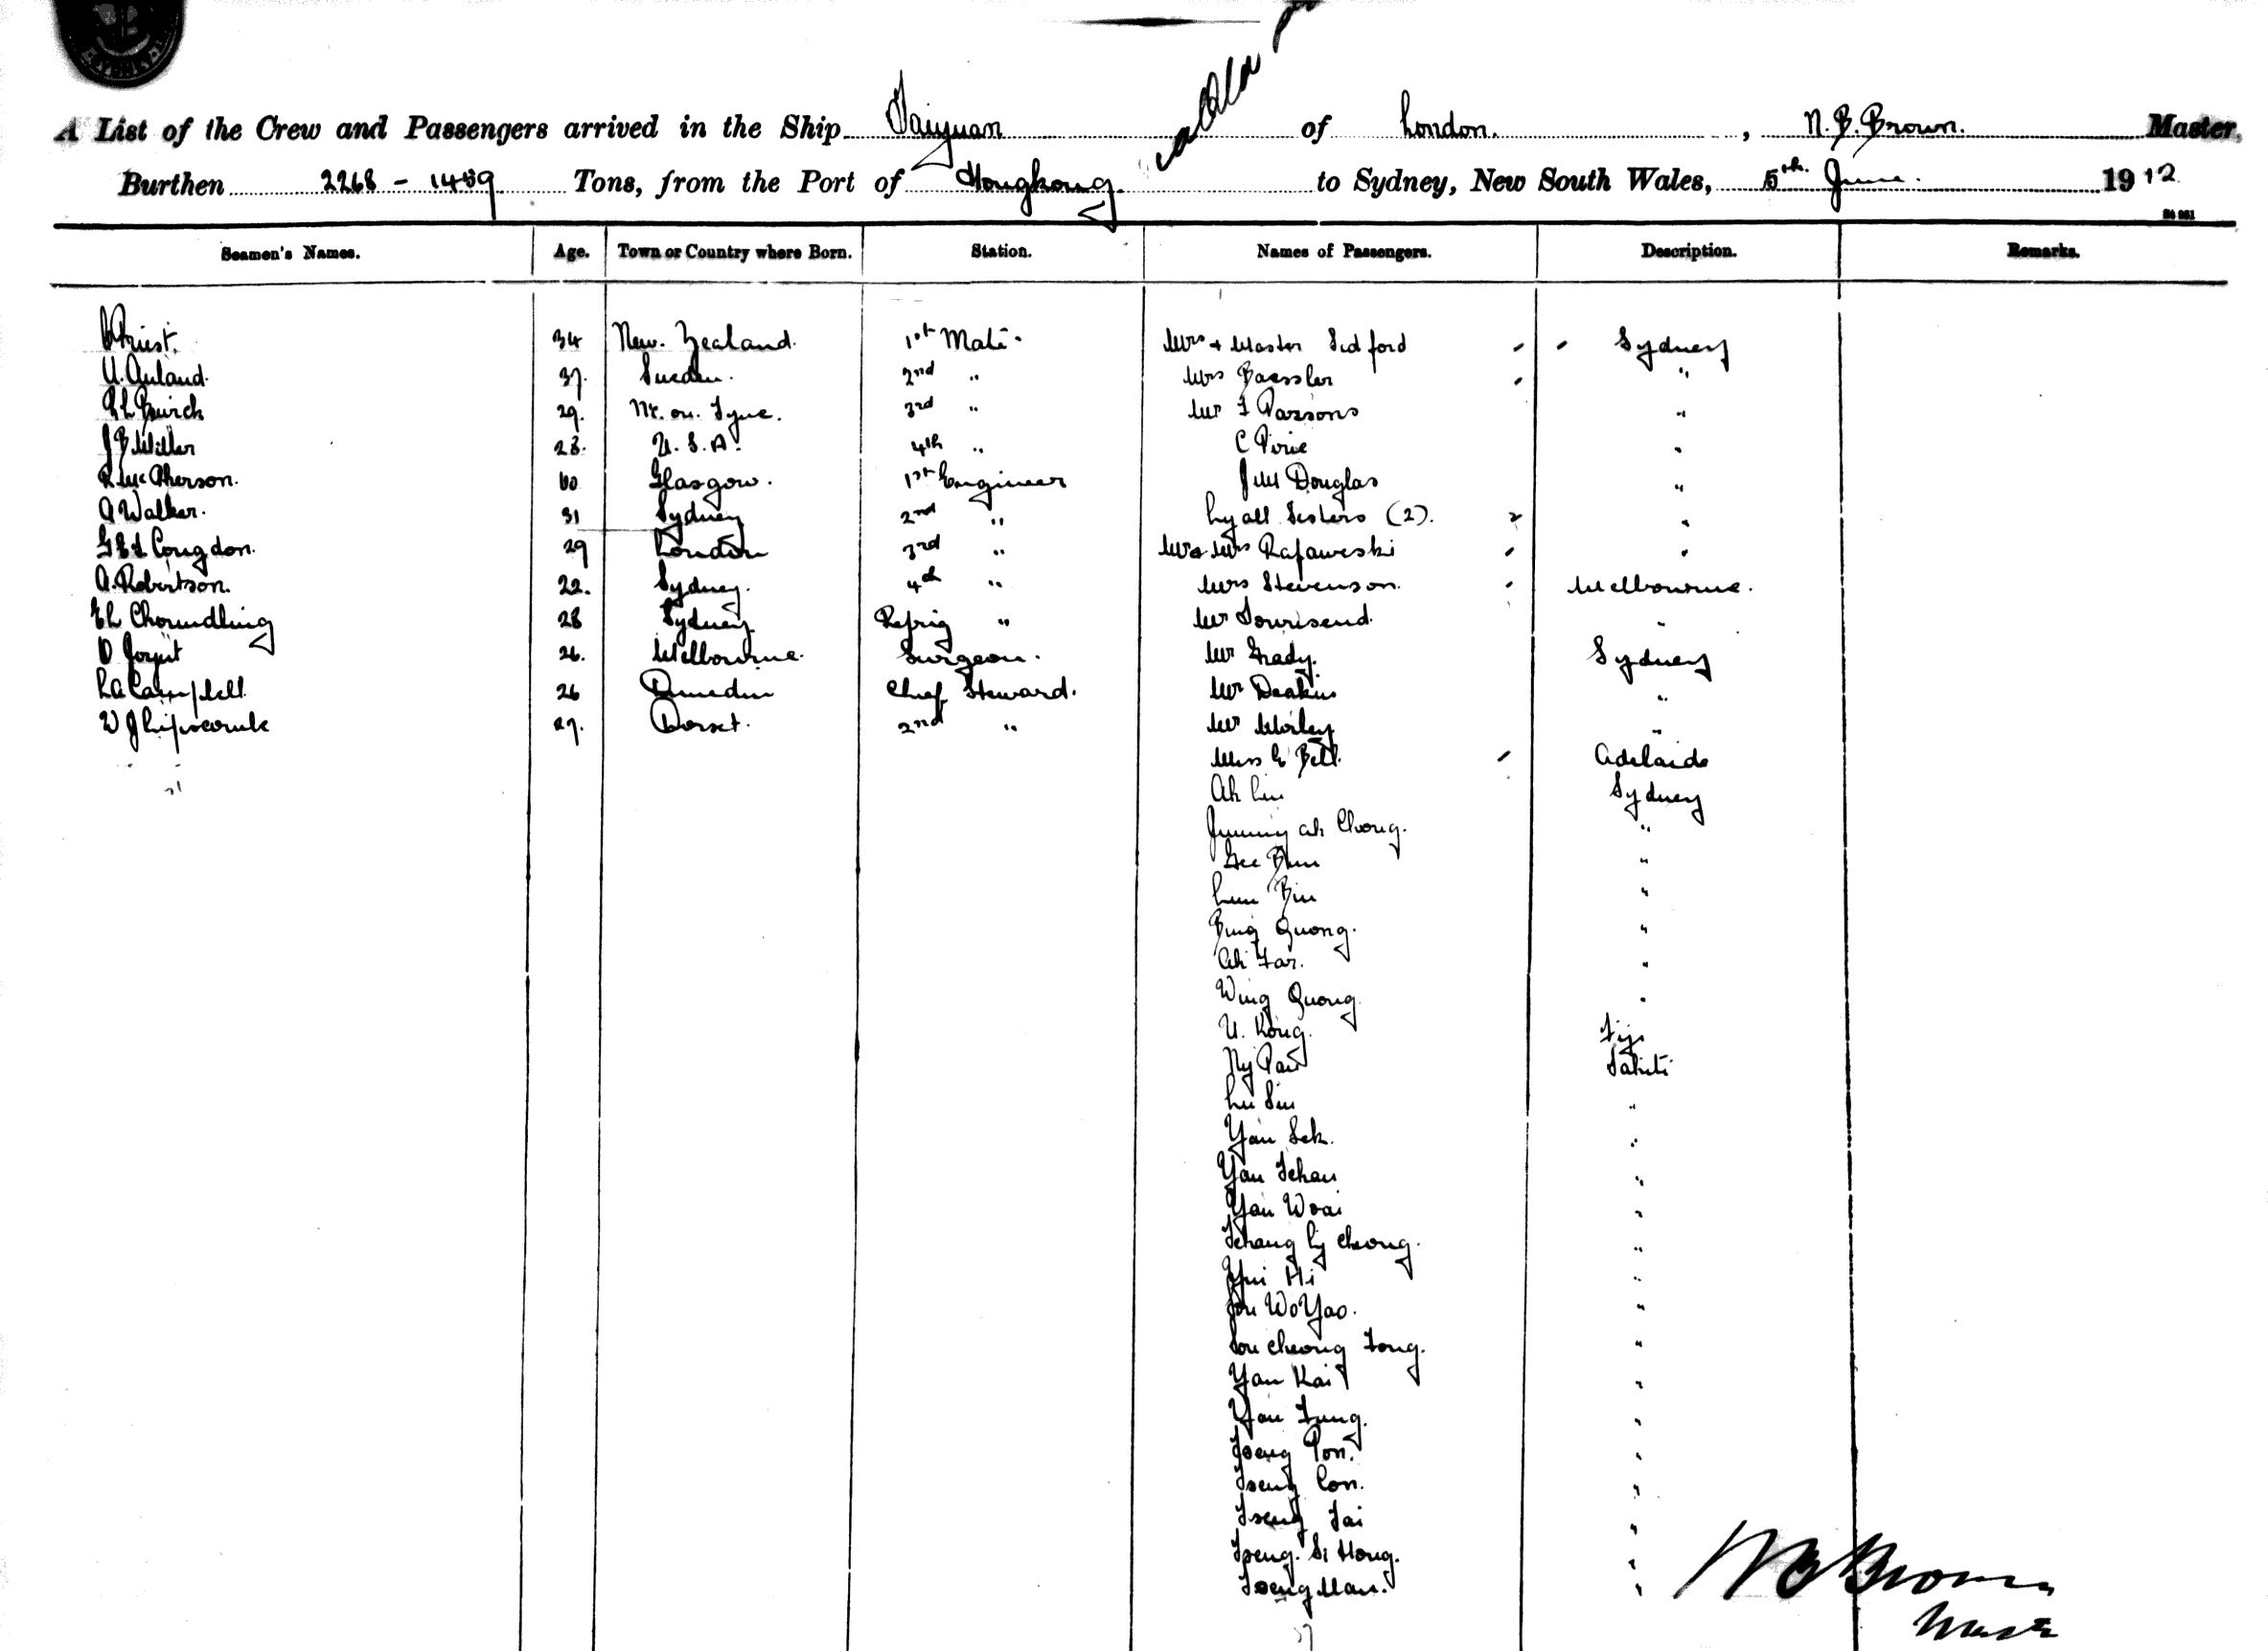 A List of the Crew and Passengers arrived in the Ship Taiyuan of London. , N. B. Brown. Master,
Burthen 2268 - 1459 Tons, from the Port of Hongkong. to Sydney, New South Wales, 5th June. 1912
Seamen's Names. Age. Town or Country where Born. Station. Names of Passengers. Description. Remarks.
Priest. 34 New Zealand. 1st Mate. Mrs + Master Sedford Sydney
37. Sweden. 2nd " Mrs Baessler "
29. Nc. on. Tyne. 3rd " Mr F Parsons "
J B Miller 28. U.S.A. 4th " C Pirie "
R McPherson. 60 Glasgow. 1st Engineer J M Douglas "
A Walker. 31 Sydney 2nd " Lyall Sisters (2). 2 "
Congdon. 29 London 3rd " Mr & Mrs Rafaweski "
A. Robertson. 22. Sydney. 4th " Mrs Stevenson. Melbourne.
28 Sydney Refrig " Mr Townsend. "
26. Melbourne. Surgeon. Mr Grady. Sydney
Campbell. 26 Dunedin Chief Steward. Mr Deakin "
W J Lipscombe 27. Dorset. 2nd " Mr Morley "
Miss E Bell. Adelaide
Ah Lin Sydney
Jimmy ah Chong. "
Gee Bun "
Lum Bin "
Bing Quong. "
Ah Far. "
Wing Quong "
U. Kong. Fiji
Ny Pan Tahiti
Lu Sin "
Yan Sek. "
Yan Tchan "
Yan Woai "
Tchang Ly Cheong. "
Hi "
Wo Yao. "
Sou Cheong Fong. "
Yan Kai "
Yan Fung. "
Tseng Pon. "
Tseng Con. "
Tseng Tai "
Tseng. Si Hong. "
Tseng Man. "
N B Brown
Master